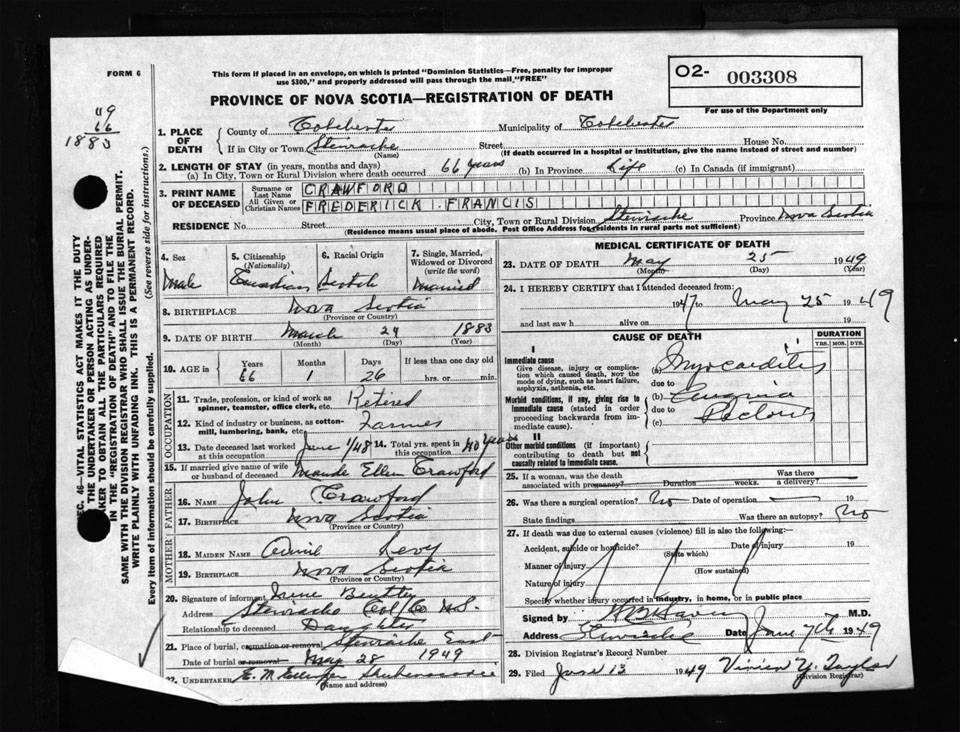 FORM 6
This form if placed in an envelope, on which is printed "Dominion Statistics—Free, penalty for improper
use $300," and properly addressed will pass through the mail "FREE"
O2- 003308
For use of the Department only
PROVINCE OF NOVA SCOTIA—REGISTRATION OF DEATH
49
66
1883
1. PLACE OF DEATH
County of Colchester Municipality of Colchester
If in City or Town Stewiacke Street House No.
(Name) (If death occurred in a hospital or institution, give the name instead of street and number)
2. LENGTH OF STAY (in years, months and days)
(a) In City, Town or Rural Division where death occurred 66 years (b) In Province Life (c) In Canada (if immigrant)
3. PRINT NAME OF DECEASED
Surname or Last Name CRAWFORD
All Given or Christian Names FREDERICK FRANCIS
RESIDENCE No. Street City, Town or Rural Division Stewiacke Province Nova Scotia
(Residence means usual place of abode. Post Office Address for residents in rural parts not sufficient)
4. Sex Male
5. Citizenship (Nationality) Canadian
6. Racial Origin Scotch
7. Single, Married, Widowed or Divorced (write the word) Married
8. BIRTHPLACE Nova Scotia
(Province or Country)
9. DATE OF BIRTH March 29 1883
(Month) (Day) (Year)
10. AGE in Years Months Days If less than one day old
66 1 26 hrs. or min.
OCCUPATION
11. Trade, profession, or kind of work as spinner, teamster, office clerk, etc. Retired
12. Kind of industry or business, as cotton-mill, lumbering, bank, etc. Farmer
13. Date deceased last worked at this occupation June 1/48
14. Total yrs. spent in this occupation 40 years
15. If married give name of wife or husband of deceased Maude Ellen Crawford
FATHER
16. NAME John Crawford
17. BIRTHPLACE Nova Scotia
(Province or Country)
MOTHER
18. MAIDEN NAME Levy
19. BIRTHPLACE Nova Scotia
(Province or Country)
20. Signature of informant Irene Bentley
Address Stewiacke Col. Co N.S.
Relationship to deceased Daughter
21. Place of burial, cremation or removal Stewiacke East
Date of burial or removal May 28 1949
22. UNDERTAKER E. M. Shubenacadie
(Name and address)
MEDICAL CERTIFICATE OF DEATH
23. DATE OF DEATH May 25 1949
(Month) (Day) (Year)
24. I HEREBY CERTIFY that I attended deceased from:
1947 to May 25 1949
and last saw h alive on 19
CAUSE OF DEATH
DURATION
YRS. MOS. DYS.
I
Immediate cause
Give disease, injury or complication which caused death, NOT the mode of dying, such as heart failure, asphyxia, asthenia, etc.
(a) Myocarditis
due to
Morbid conditions, if any, giving rise to immediate cause (stated in order proceeding backwards from immediate cause).
(b) Angina
due to Pectoris
(c)
II
Other morbid conditions (if important) contributing to death but not causally related to immediate cause.
25. If a woman, was the death associated with pregnancy? Duration weeks. Was there a delivery?
26. Was there a surgical operation? No Date of operation 19
State findings Was there an autopsy? No
27. If death was due to external causes (violence) fill in also the following:—
Accident, suicide or homicide? Date of injury 19
(State which)
Manner of injury
(How sustained)
Nature of injury
Specify whether injury occurred in industry, in home, or in public place
Signed by M.D.
Address Stewiacke Date June 7th 1949
28. Division Registrar's Record Number
29. Filed June 13 1949 Vivian Y. Taylor
(Division Registrar)
SEC. 46—VITAL STATISTICS ACT MAKES IT THE DUTY
THE UNDERTAKER OR PERSON ACTING AS UNDER-
TAKER TO OBTAIN ALL THE PARTICULARS REQUIRED
IN THE "REGISTRATION OF DEATH" AND TO FILE THE
SAME WITH THE DIVISION REGISTRAR WHO SHALL ISSUE THE BURIAL PERMIT.
WRITE PLAINLY WITH UNFADING INK. THIS IS A PERMANENT RECORD.
Every item of information should be carefully supplied. (See reverse side for instructions.)